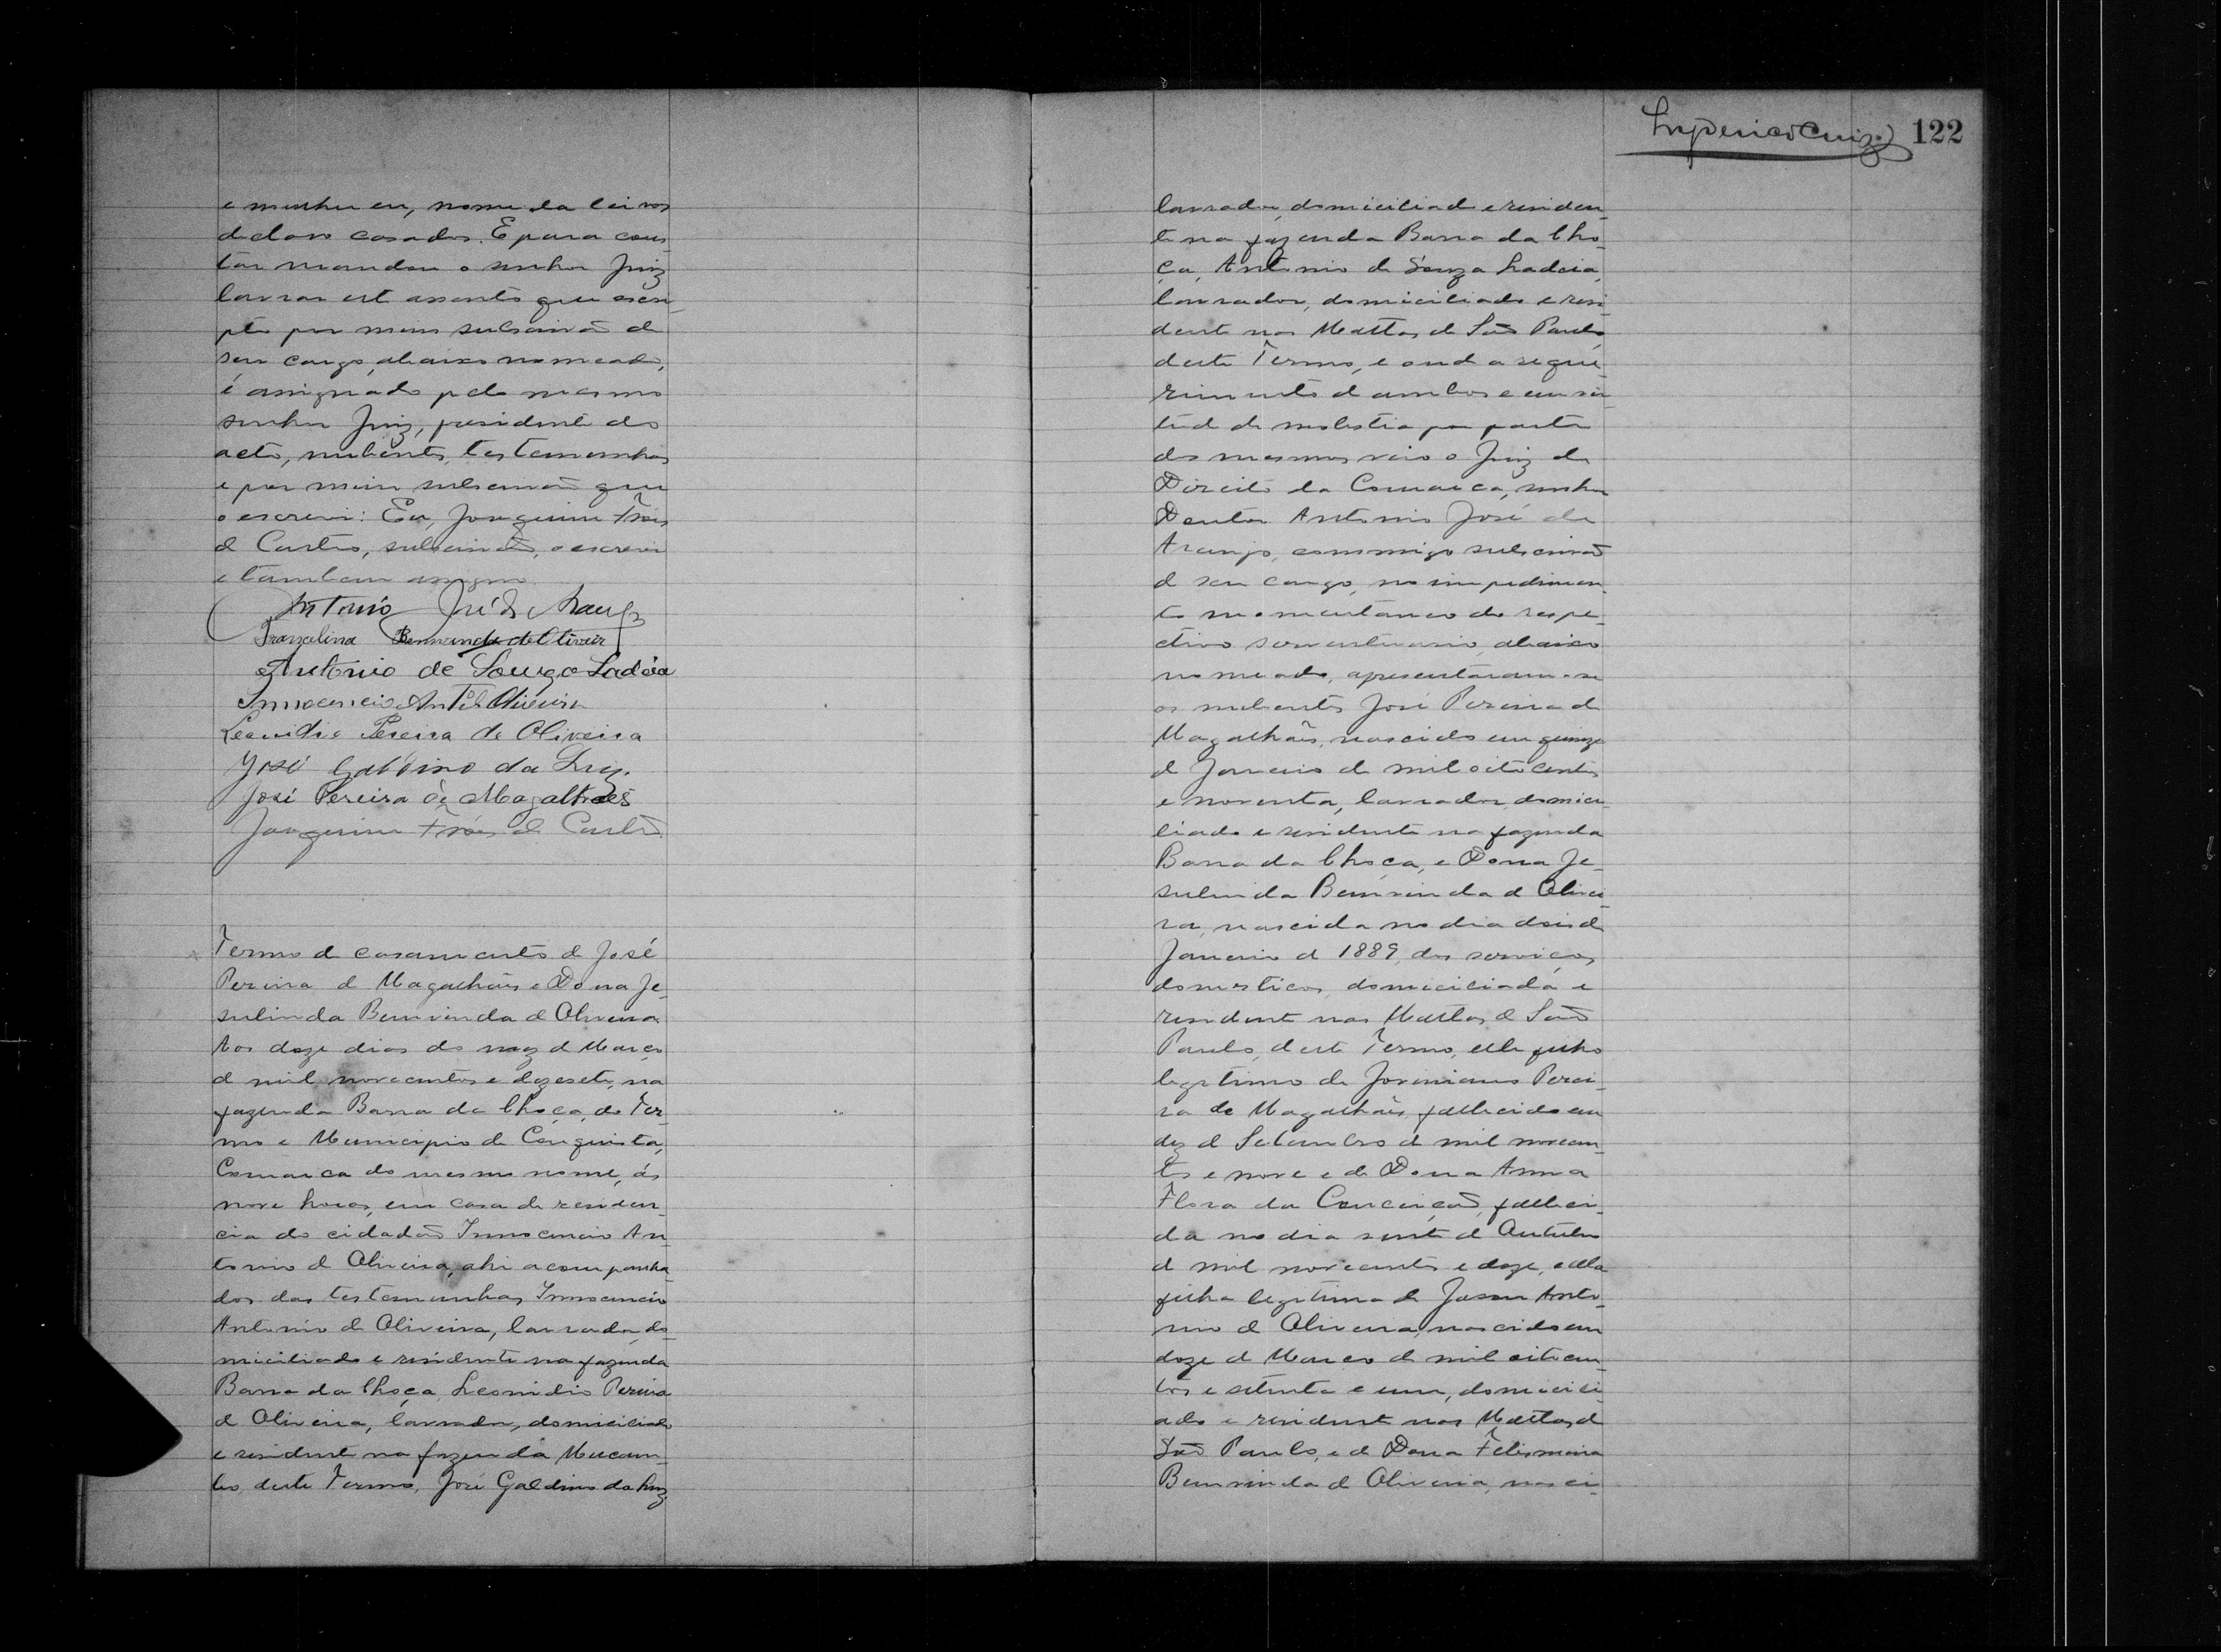 e mulher eu, nome da lei vos
declaro casados. E para cons-
tar mandou o senhor Juiz
lavrar est assento que escri-
pto por mim subscrivão de
seu cargo, abaixo nomeado,
é assignado pelo mesmo
senhor Juiz, presidente do
acto, nubentes, testemunhas
e por mim subscrivão que
o escrevi: Eu, Joaquim Fróes
de Castro, subscrivão, o escrevi
e tambem assigno
Antonio José de Araujo
de Oliveira
Antonio de Souza Ladeia
Innocencio Ant.º de Oliveira
Leonidio Pereira de Oliveira
José Galdino da Luz.
José Pereira de Magalhães
Joaquim Fróes de Castro
Termo de casamento de José
Pereira de Magalhães e Dona Je-
sulinda Bemvinda de Oliveira
Aos doze dias do mez de Março
de mil novecentos e dezesete, na
fazenda Barra da Choça, do Ter-
mo e Municipio de Conquista,
Comarca do mesmo nome, ás
nove horas, em casa de residen-
cia do cidadão Innocencio An-
tonio de Oliveira, ahi acompanha-
dos das testemunhas Innocencio
Antonio de Oliveira, lavrador, do-
miciliado e residente na fazenda
Barra da Choça, Leonidio Pereira
de Oliveira, lavrador, domiciliado
e residente na fazenda Mucam-
bo, deste Termo, José Galdino da Luz,
122
lavrador, domiciliado e residen-
te na fazenda Barra da Cho-
ça, Antonio de Souza Ladeia,
lavrador, domiciliado e resi-
dente nas Mattas de São Paulo
deste Termo, e onde a reque-
rimento de ambos e em vir-
tude de molestia por parte
dos mesmos veio o Juiz de
Direito da Comarca, senhor
Doutor Antonio José de
Araujo, commigo subscrivão
de seu cargo, no impedimen-
to momentaneo do respe-
ctivo serventuario, abaixo
nomeado, apresentaram-se
os nubentes José Pereira de
Magalhães, nascido em quinze
de Janeiro de mil oitocentos
e noventa, lavrador, domici-
liado e residente na fazenda
Barra da Choça, e Dona Je-
sulinda Bemvinda de Olivei-
ra, nascida no dia dois de
Janeiro de 1889, dos serviços
domesticos, domiciliada e
residente nas Mattas de São
Paulo, deste Termo, elle filho
legitimo de Joviniano Perei-
ra de Magalhães, fallecido em
dez de Setembro de mil novecen-
tos e nove e de Dona Anna
Flora da Conceição, falleci-
da no dia vinte de Outubro
de mil novecentos e doze, e ella
filha legitima de Anto-
nio de Oliveira, nascido em
doze de Março de mil oitocen-
tos e setenta e um, domicili-
ado e residente nas Mattas de
São Paulo, e de Dona Felismina
Bemvinda de Oliveira, nasci-